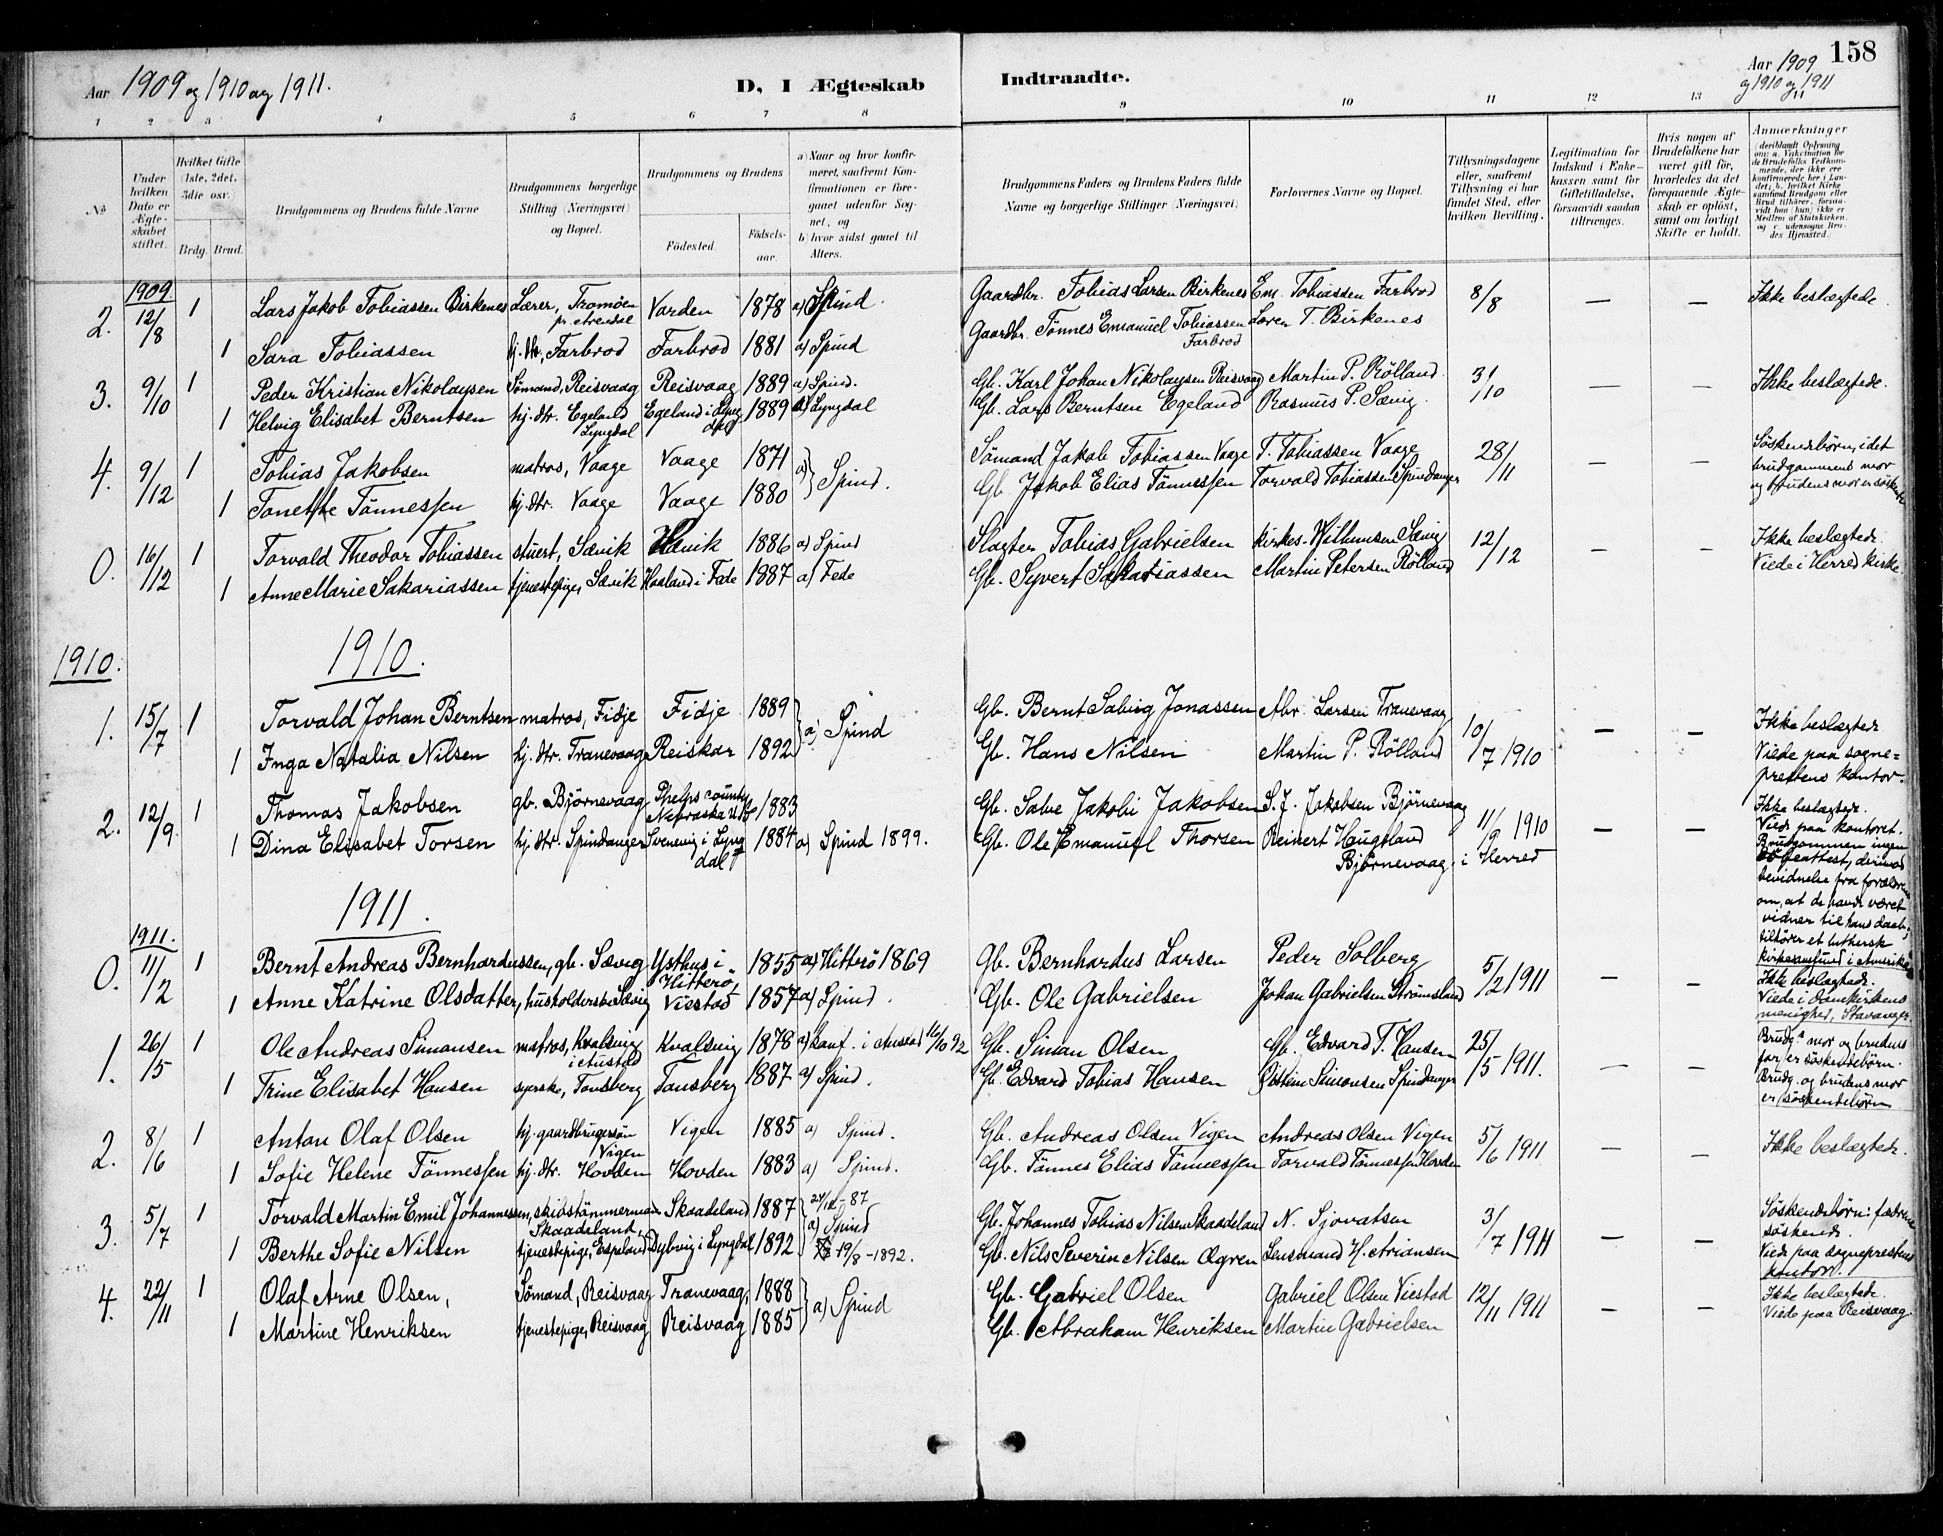 Aar 1909 og 1910 og 1911.
D, I Ægteskab Indtraadte.
Aar 1909 158
og 1910 og 1911
1 2 3 4 5 6 7 8 9 10 11 12 13 11
No
Under hvilken Dato er Ægteskabet stiftet.
Hvilket Gifte (1ste, 2det, 3die osv.
Brdg. Brud.
Brudgommens og Brudens fulde Navne
Brudgommens borgerlige Stilling (Næringsvei) og Bopæl.
Brudgommens og Brudens
Födested. Födselsaar.
a) Naar og hvor konfirmeret, saafremt Konfirmationen er foregaaet udenfor Sognet, og
b) hvor sidst gaaet til Alters.
Brudgommens Faders og Brudens Faders fulde Navne og borgerlige Stillinger (Næringsvei)
Forlovernes Navne og Bopæl.
Tillysningsdagene eller, saafremt Tillysning ei har fundet Sted, efter hvilken Bevilling.
Legitimation for Indskud i Enkekassen samt for Giftetilladelse, forsaavidt saadan tiltrænges.
Hvis nogen af Brudefolkene har været gift før, hvorledes da det foregaaende Ægteskab er oplöst, samt om lovligt Skifte er holdt.
Anmærkninger (deriblandt Oplysning om: a. Vakcination for de Brudefolks Vedkommende, der ikke ere konfirmerede her i Landet; b. hvilket Kirkesamfund Brudgom eller Brud tilhører, forsaavidt han (hun) ikke er Medlem af Statskirken, og c. udensogns Brudes Hjemsted.
1909
2. 12/8 1 Lars Jakob Tobiassen Birkenes Lærer, Tromöen pr. Arendal Varden 1878 a) Spind. Gaardbr. Tobias Larsen Birkenes Em. Tobiassen Farbrod 8/8 — — Ikke beslægtede.
1 Sara Tobiassen hj. dtr, Farbrod Farbrod 1881 a) Spind Gaardbr. Tönnes Emanuel Tobiassen Farbrod Soren T. Birkenes
3. 9/10 1 Peder Kristian Nikolaysen Sömand, Reisvaag Reisvaag 1889 a) Spind. Gb. Karl Johan Nikolaysen Reisvaag Martin P. Rölland. 3/10 — — Ikke beslægtede.
1 Helvig Elisabet Berntsen hj. dtr. Egeland Lyngdal Egeland i Lyngdal 1889 a) Lyngdal Gb. Lars Berntsen Egeland Rasmus P. Sævig
4. 9/12 1 Tobias Jakobsen matros, Vaage Vaage 1871 a) Spind. Sömand Jakob Tobiassen Vaage T. Tobiassen Vaage 28/11 — — Söskendebörn, idet brudgommens mor og brudens mor er söskende
1 Tonette Tönnessen hj. dtr. Vaage Vaage 1880 Gb. Jakob Elias Tönnessen Torvald Tobiassen Spindanger
0. 16/12 1 Torvald Theodor Tobiassen stuert, Sævik Hævik 1886 a) Spind Slagter Tobias Gabrielsen kirkes. Wilhumsen Sævig 12/12 — — Ikke beslægtede.
1 Anne Marie Sakariassen tjenestepige, Sævik Haaland i Fede 1887 a) Fede Gb. Syvert Sakariassen Martin Petersen Rölland Viede i Herred kirke.
1910. 1910.
1. 15/7 1 Torvald Johan Berntsen matros, Fidje Fidje 1889 a) Spind Gb. Bernt Salvig Jonassen Abr. Larsen Tranevaag 10/7 1910 — — Ikke beslægtede
1 Inga Natalia Nilsen hj. dtr. Tranevaag Reiskar 1892 Gb. Hans Nilsen Martin P. Rölland Viede paa sogneprestens kontor.
2. 12/9. 1 Thomas Jakobsen gb. Björnevaag Phelps county Nebraska 1883 Gb. Salve Jakobi Jakobsen S. J. Jakobsen Björnevaag 11/9 1910 — — Ikke beslægtede.
1 Dina Elisabet Torsen hj. dtr. Spindanger Svenevig i Lyngdal 1884 a) Spind 1899. Gb. Ole Emanuel Thorsen Reinert Haugland Björnevaag i Herred Viede paa kontoret.
Brudgommen ingen attest, derimod bevidnelse fra forældrene om, at de havde været vidner til hans daab, tilhörer et luthersk kirkesamfund i Amerika
1911.
1911.
0. 11/2 1 Bernt Andreas Bernhardussen, gb. Sævig Ysthus i Hitterö 1855 a) Hitterö 1869 Gb. Bernhardus Larsen Peder Solberg 5/2 1911 — — Ikke beslægtede.
1 Anne Katrine Olsdatter, husholderske Sævig Viestad 1857 a) Spind. Gb. Ole Gabrielsen Johan Gabrielsen Strömsland Viede i domkirkens menighed, Stavanger
1. 26/5 1 Ole Andreas Simonsen matros, Kvalsvig i Austad Kvalsvig 1878 a) konf. i Austad 16/10 92 Gb. Simon Olsen Gb. Edvard T. Hansen 25/5 1911. — — Brudg.s mor og brudens far er söskendebörn.
1 Trine Elisabet Hansen syerske, Tansberg Tansberg 1887 a) Spind. Gb. Edvard Tobias Hansen Östein Simonsen Spindanger Brudg. og brudens mor er söskendebörn
2. 8/6 1 Anton Olaf Olsen hj. gaardbrugersön Vigen Vigen 1885 a) Spind. Gb. Andreas Olsen Vigen Andreas Olsen Vigen 5/6 1911 — — Ikke beslægtede.
1 Sofie Helene Tönnessen hj. dtr. Hovden Hovden 1883 a) Spind. Gb. Tönnes Elias Tönnessen Torvald Tönnessen Hovden
3. 5/7 1 Torvald Martin Emil Johannessen, skibstömmermand Skaadeland, Skaadeland 1887 a) Spind Gb. Johannes Tobias Nilsen Skaadeland N. Sjovatsen 3/7 1911 — — Söskendebörn: fædrene söskende.
1 Berthe Sofie Nilsen tjenestepige, Espeland Dybvig i Lyngdal 1892 19/8 - 1892. Gb. Nils Severin Nilsen Ögren Lensmand H. Ariansen Viede paa sogneprestens kontor.
4. 22/11 1 Olaf Arne Olsen, Sömand, Reisvaag Tranevaag, 1888 a) Spind Gb. Gabriel Olsen Gabriel Olsen Viestad 12/11 1911 — — Ikke beslægtede.
1 Martine Henriksen tjenestepige, Reisvaag Reisvaag 1885 Gb. Abraham Henriksen Martin Gabrielsen Viede paa Reisvaag.